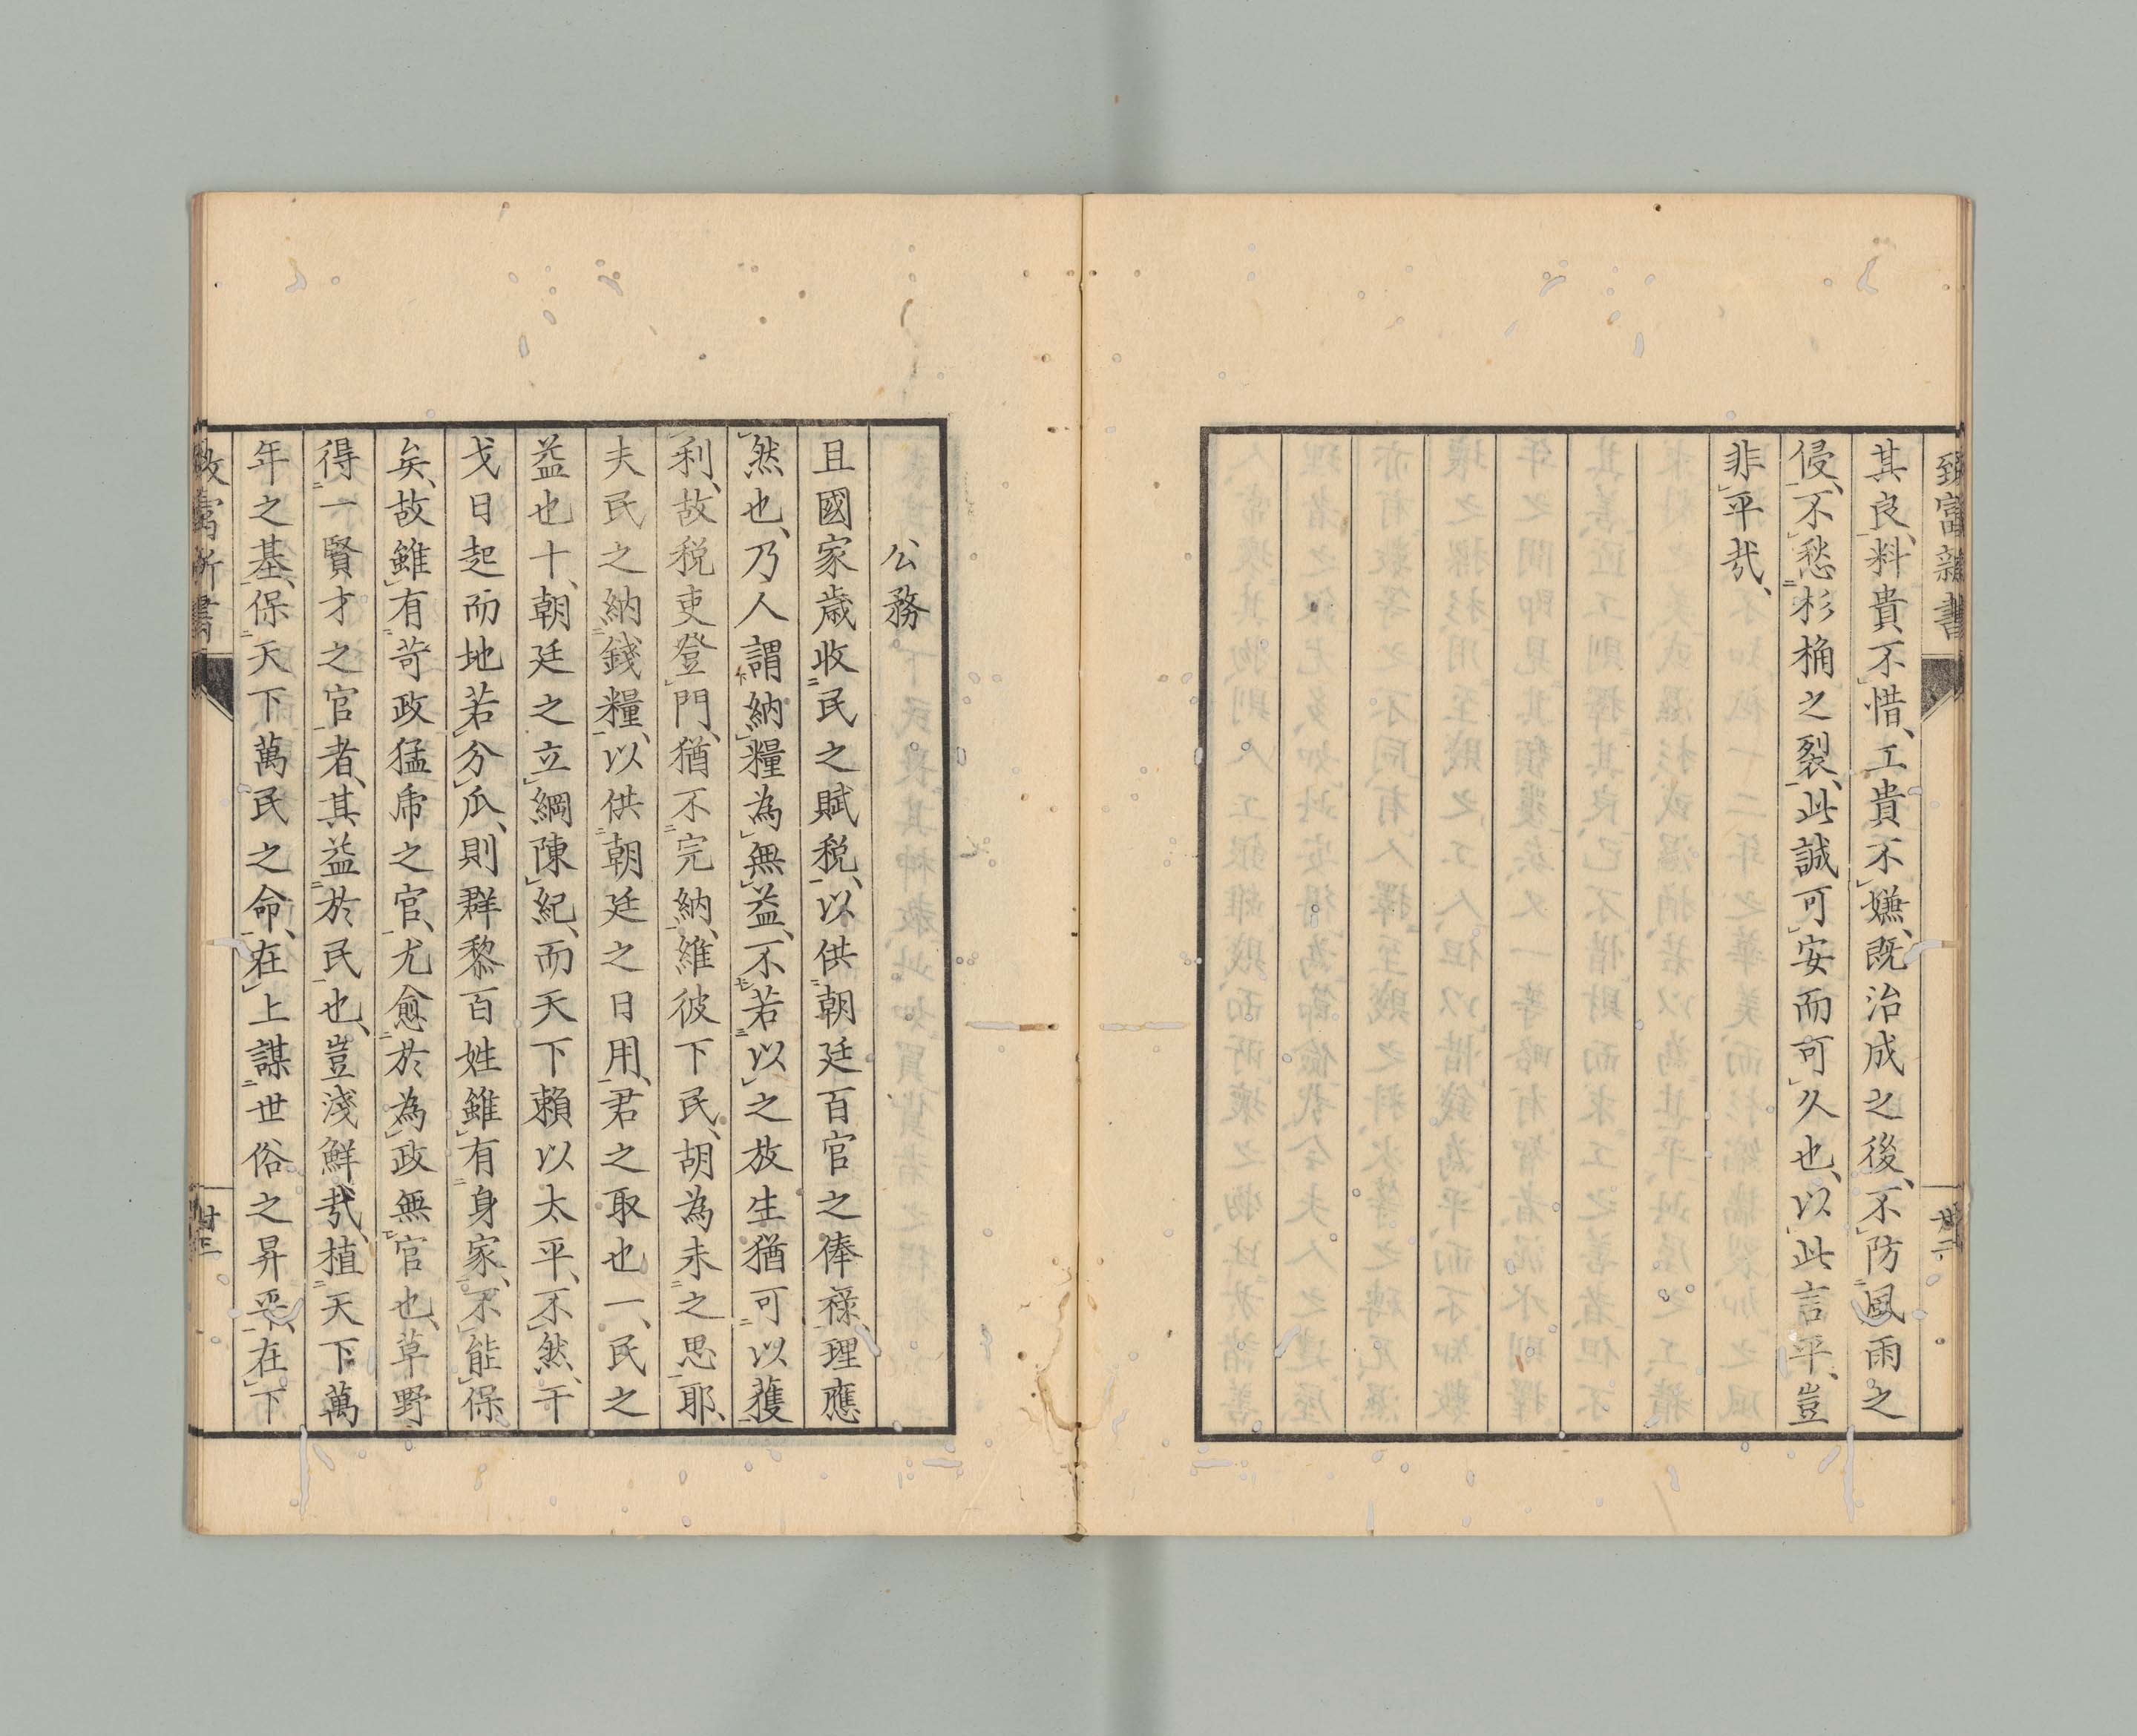 致富新書
廿二
其良、料貴不惜、工貴不嫌、既治成之後、不防風雨之
侵、不愁杉桷之裂、此誠可安而可久也、以此言乎、豈
非平哉、
公務
且國家歲收民之賦税、以供朝廷百官之俸祿、理應
然也、乃人謂納糧為無益、不若以之放生猶可以獲
利、故税吏登門、猶不完納、維彼下民、胡為未之思耶、
夫民之納錢糧、以供朝廷之日用、君之取也一、民之
益也十、朝廷之立綱陳紀、而天下賴以太平、不然、干
戈日起而地若分瓜、則群黎百姓雖有身家、不能保
矣、故雖有苛政猛乕之官、尤愈於為政無官也、草野
得一賢才之官者、其益於民也、豈淺鮮哉、植天下萬
年之基、保天下萬民之命、在上謀世俗之昇平、在下
致富新書
廿三